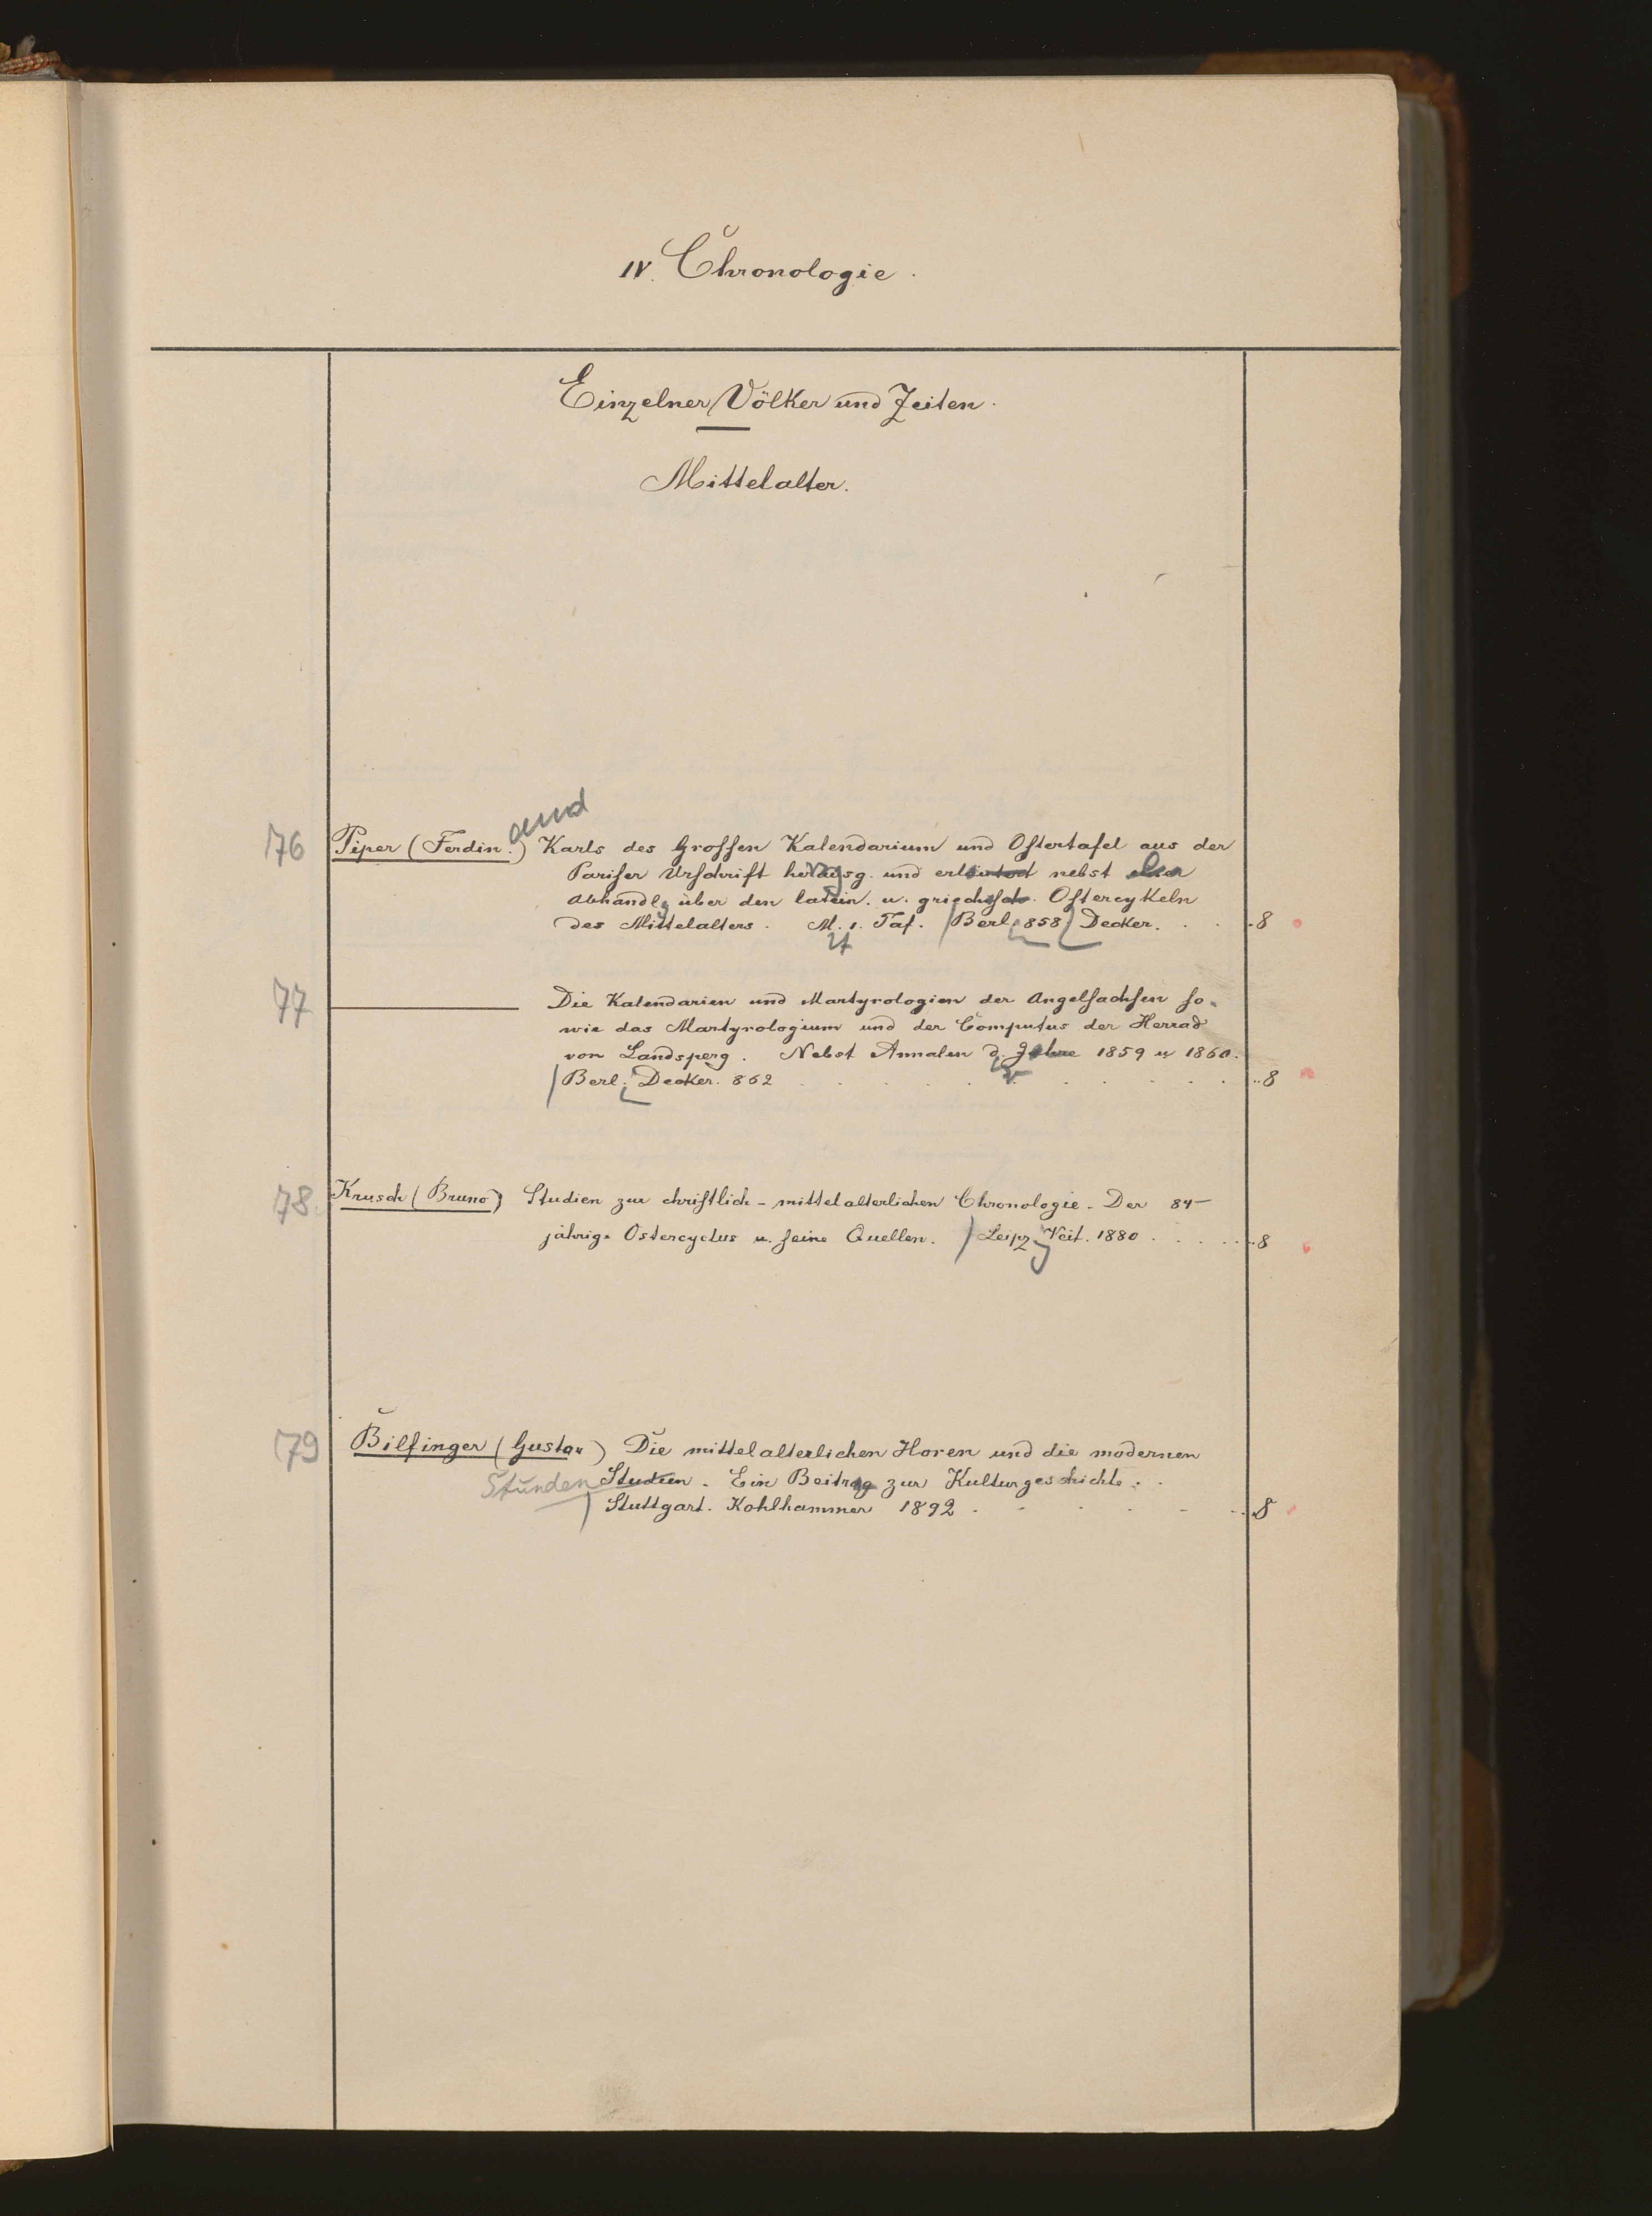 IV. Chronologie.
Einzelner Völker und Zeiten.
Mittelalter.
and
76 Piper (Ferdin.) Karls des Grossen Kalendarium und Ostertafel aus der
Pariser Urschrift herausg. und erläutert nebst
Abhandlg über den latein. u. griechisch. Ostercykeln
des Mittelalters. M. 1. Taf. Berl. 858 Decker. 8
77 ——— Die Kalendarien und Martyrologien der Angelsachsen so-
wie das Martyrologium und der Computus der Herrad
von Landsperg. Nebst Annalen d. Jahre 1859 u 1860.
Berl. Decker. 862 8
78 Krusch (Bruno) Studien zur christlich-mittelalterlichen Chronologie. Der 84-
jährige Ostercyclus u. seine Quellen. Leipz Veit. 1880 8
79 Bilfinger (Gustav) Die mittelalterlichen Horen und die modernen
Stunden Studien. Ein Beitrag zur Kulturgeschichte.
Stuttgart. Kohlhammer 1892 8